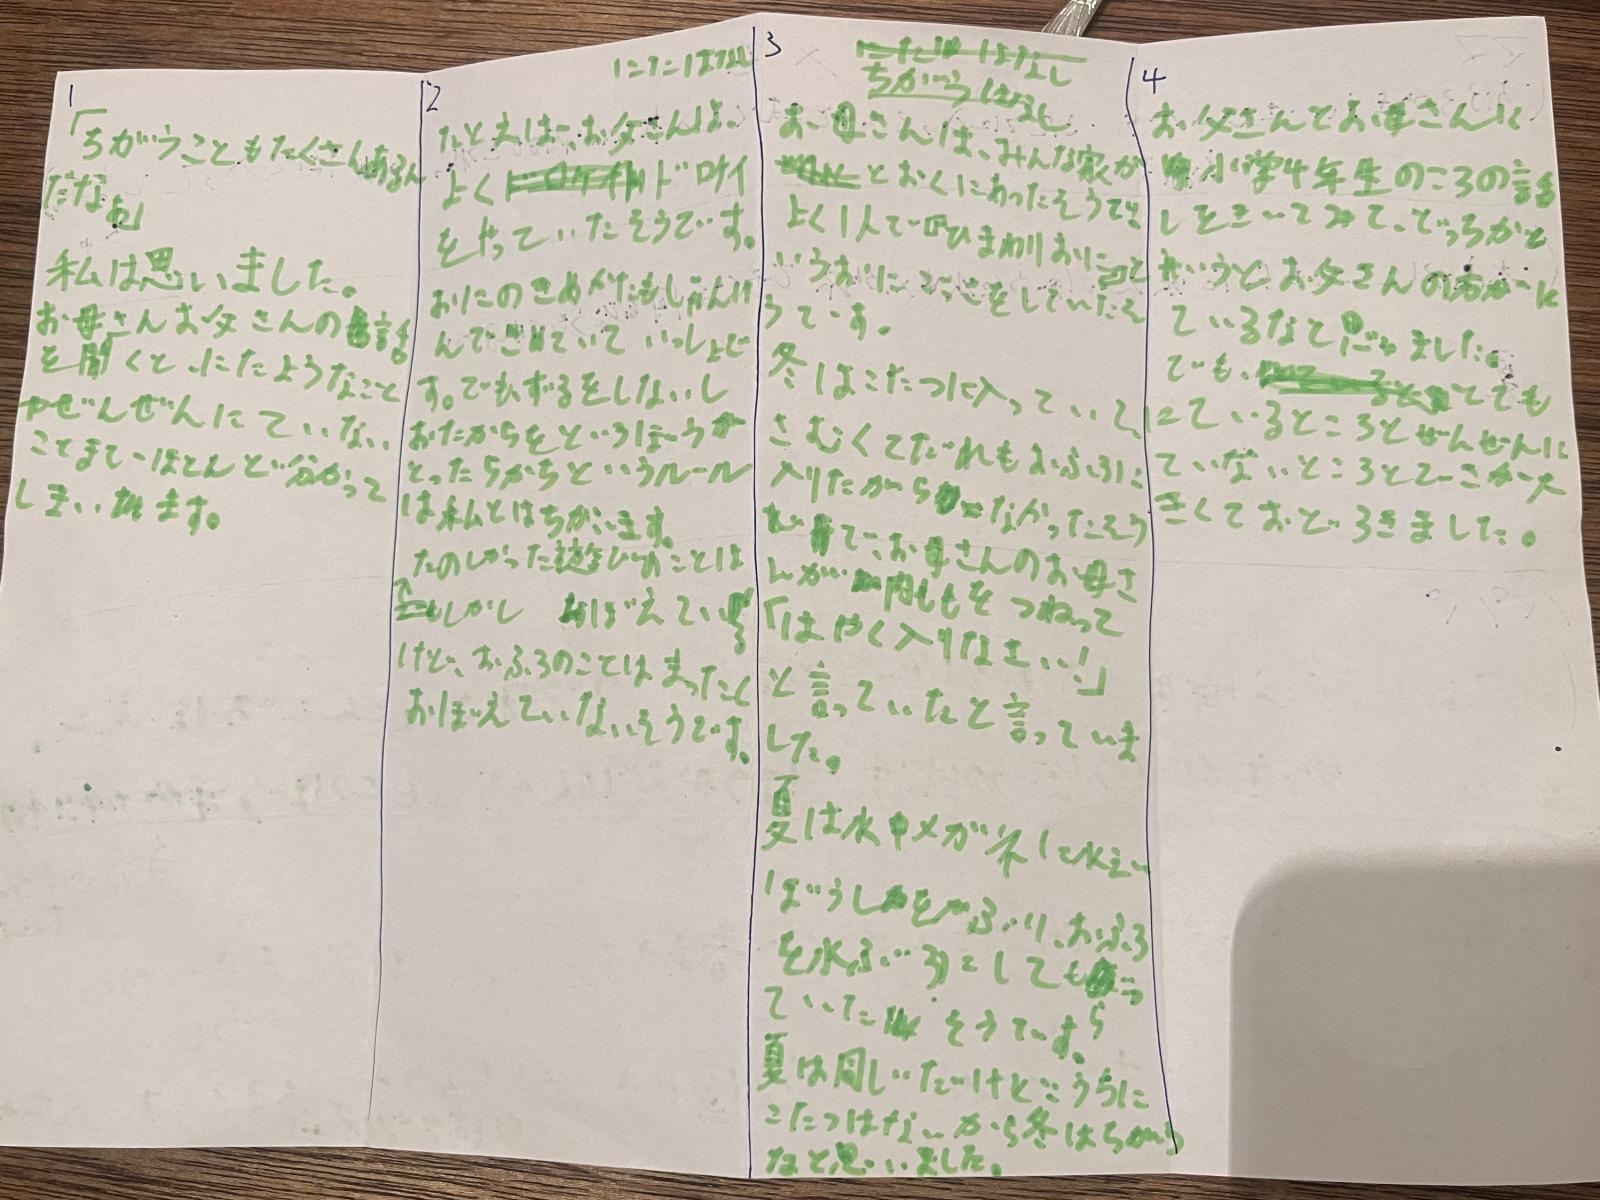 1
「ちがうこともたくさんあるん
だなぁ」
私は思いました。
お母さんお父さんの話
を聞くと、にたようなこと
やぜんぜんにていない
ことまでほとんど分かって
しまいます。
2
にたはなし
たとえば、お父さんは、
よくドロケイ
をやっていたそうです。
おにのきめかたもじゃんけ
んできめていていっしょで
す。でも、ずるをしないし
おたからをとるほうが
とったらかちというルール
は私とはちがいます。
たのしかった遊びのことは
しかし おぼえている
けど、おふろのことはまったく
おぼえていないそうです。
3
にたはなし
ちがうはなし
お母さんは、みんな家が
とおくにあったそうで
よく1人でひまわりおにって
いうおにごっこをしていたそ
うです。
冬はこたつに入っていて、
さむくてだれもおふろに
入りたがらなかったそう
で、お母さんのお母さ
んが ももをつねって
「はやく入りなさい!」
と言っていたと言っていま
した。
夏は水中メガネに水えい
ぼうしをかぶり、おふろ
を水ぶろにしてもらっ
ていたそうです。
夏は同じだけどうちに
こたつはないから冬はちがう
なと思いました。
4
お父さんとお母さんに
小学4年生のころの話
しをきいてみて、どっちかと
いうとお父さんの方がに
ているなと思いました。
でも、とても
にているところとぜんぜんに
ていないところとでさが大
きくておどろきました。